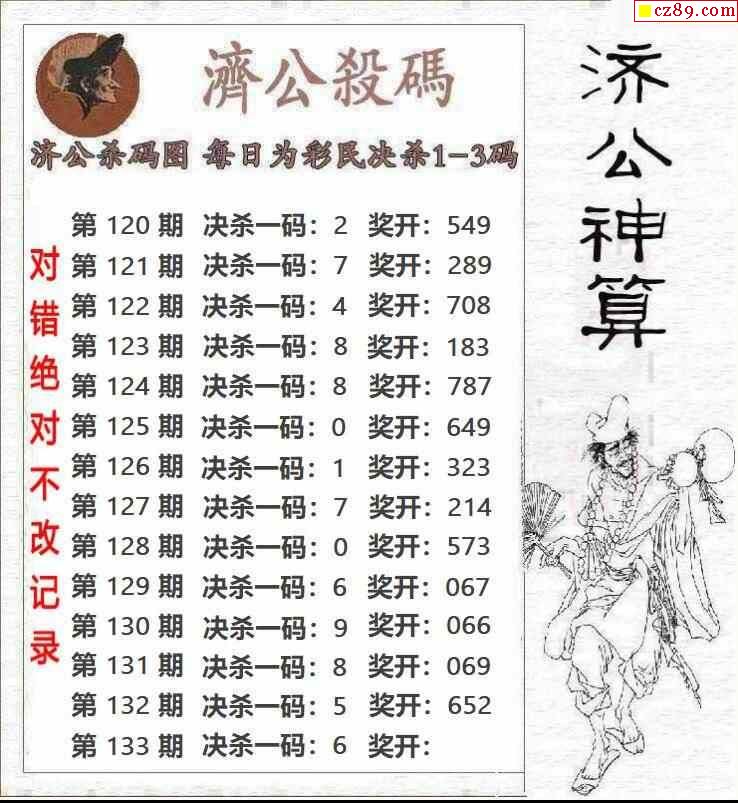 cz89.com
濟公殺碼
济公杀码图 每日为彩民决杀1-3码
第 120 期 决杀一码：2 奖开：549
第 121 期 决杀一码：7 奖开：289
第 122 期 决杀一码：4 奖开：708
第 123 期 决杀一码：8 奖开：183
第 124 期 决杀一码：8 奖开：787
第 125 期 决杀一码：0 奖开：649
第 126 期 决杀一码：1 奖开：323
第 127 期 决杀一码：7 奖开：214
第 128 期 决杀一码：0 奖开：573
第 129 期 决杀一码：6 奖开：067
第 130 期 决杀一码：9 奖开：066
第 131 期 决杀一码：8 奖开：069
第 132 期 决杀一码：5 奖开：652
第 133 期 决杀一码：6 奖开：
对错绝对不改记录
济公神算